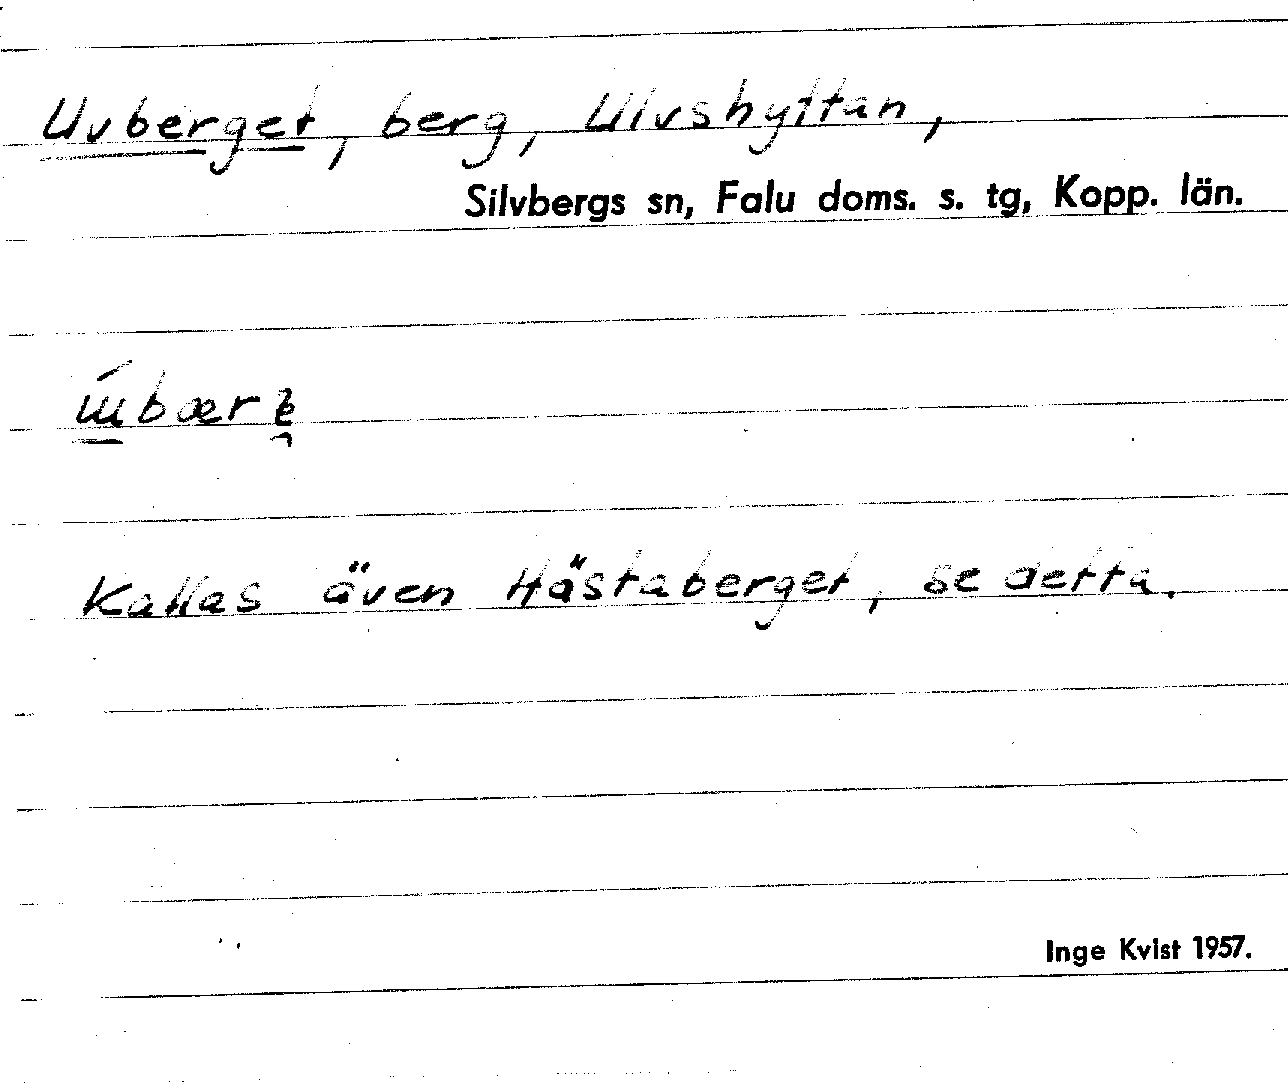 Uvberget, berg, Ulvshyttan,
Silvbergs sn, Falu doms. s. tg, Kopp. län.
Kallas även Hästaberget, se detta.
Inge Kvist 1957.